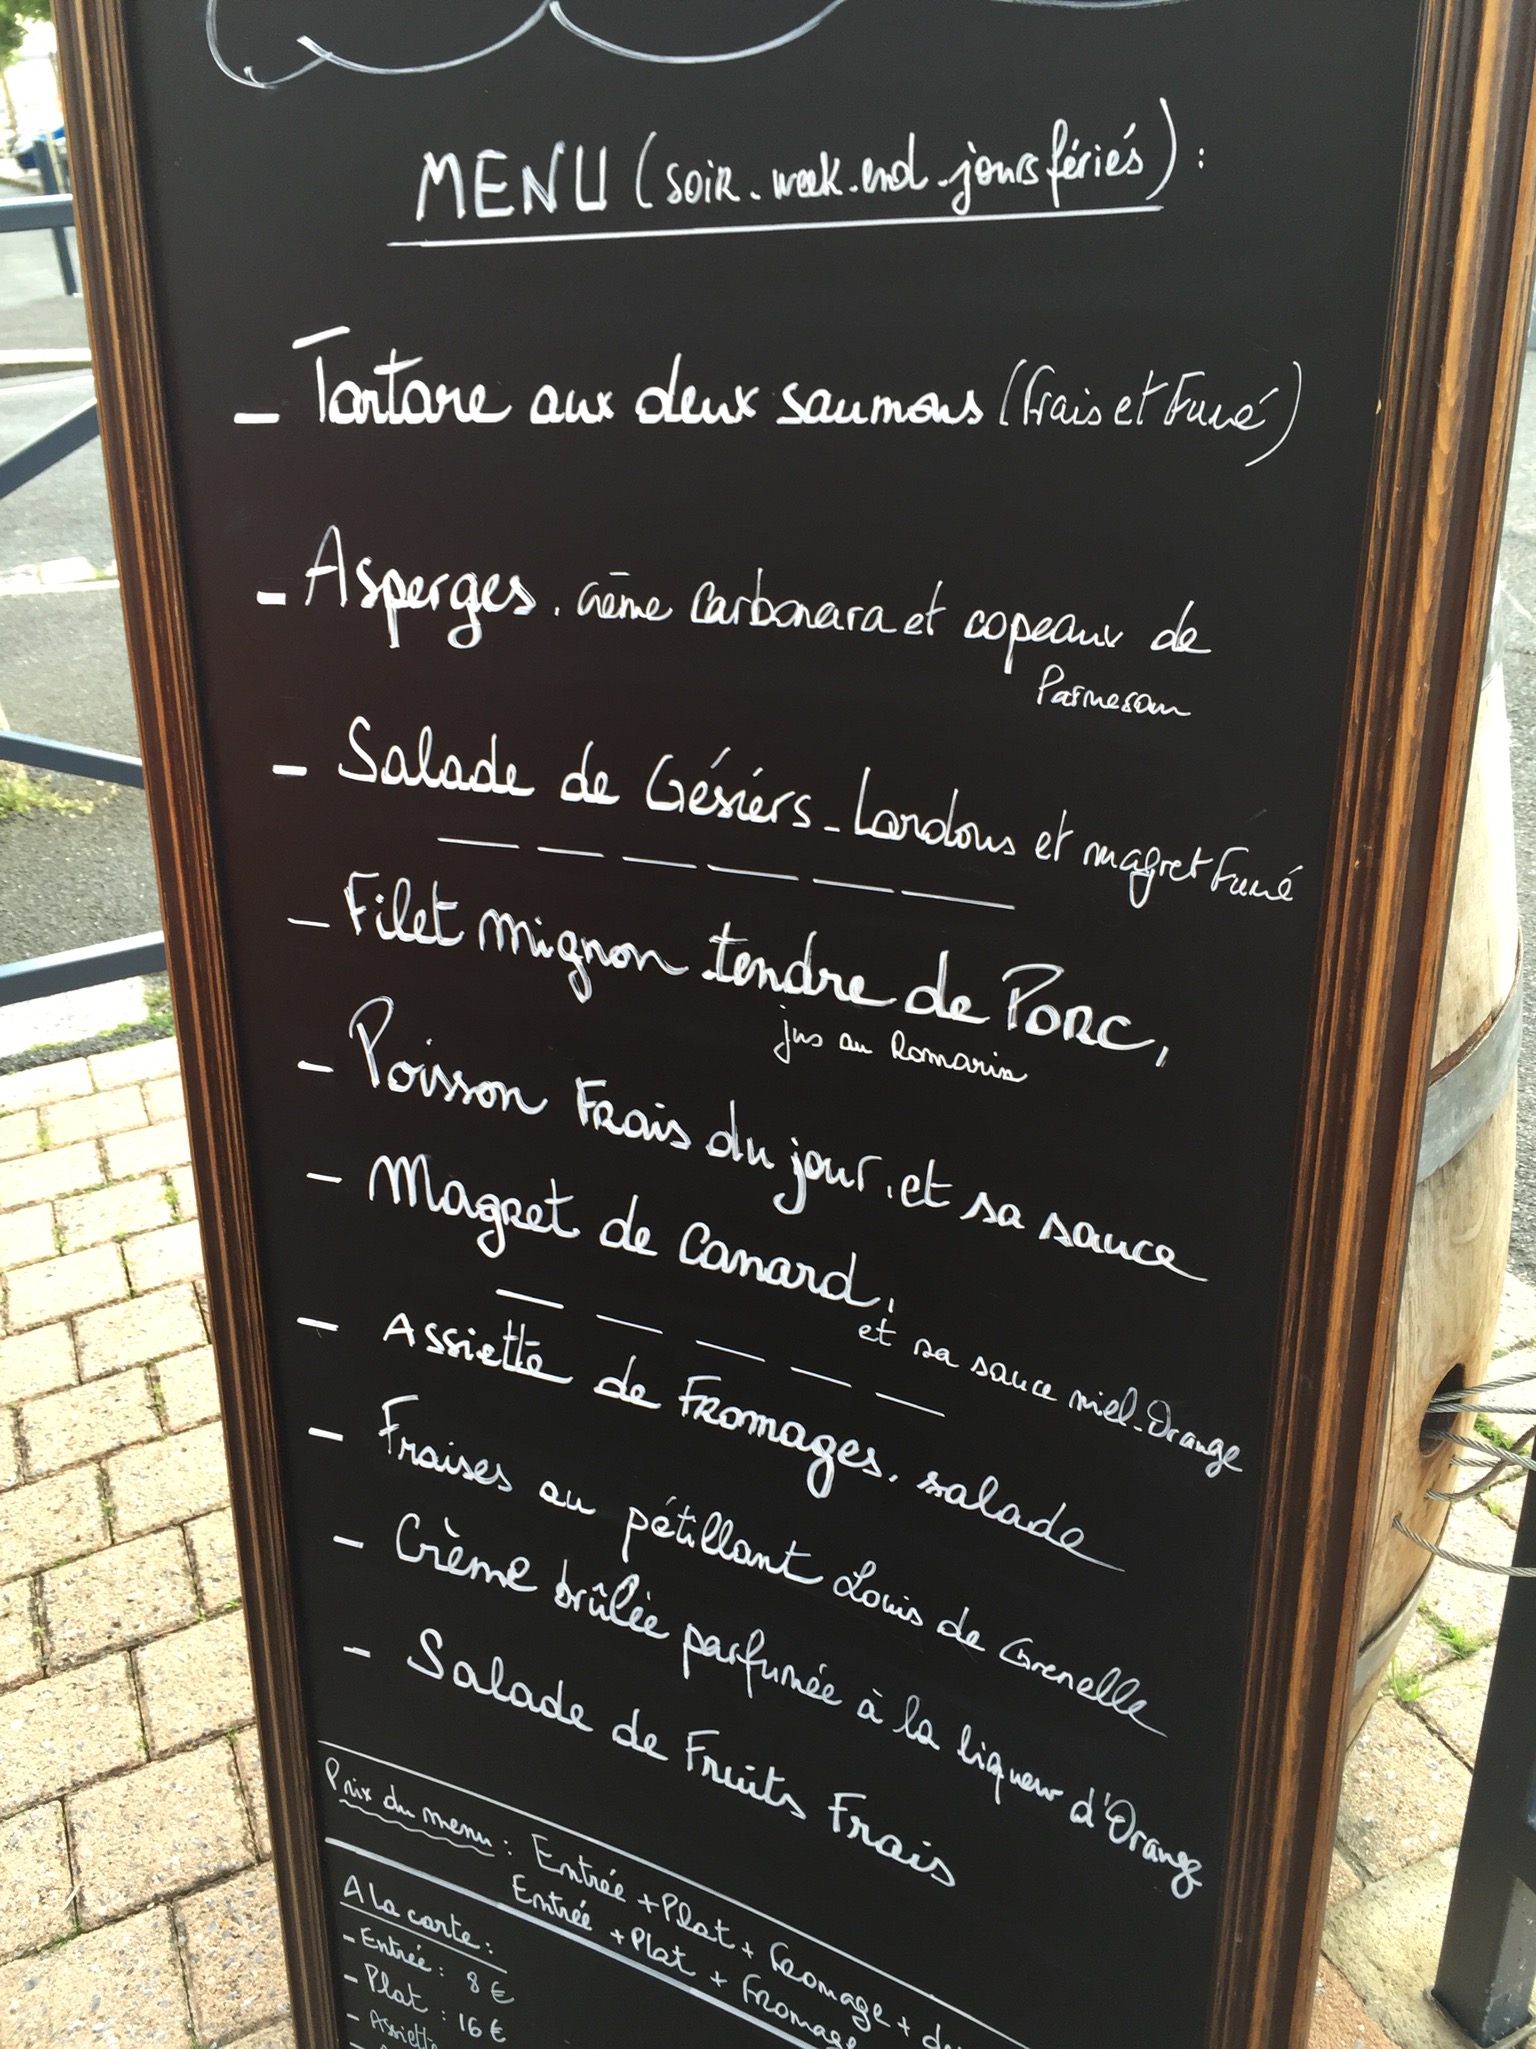 MENU (soir. week.end. jours fériés) :
- Tartare aux deux saumons (Frais et Fumé)
- Asperges. Crème Carbonara et copeaux de
Parmesan
- Salade de Gésiérs - Lardons et magret Fumé
- Filet mignon tendre de Porc,
jus au Romarin
- Poisson Frais du jour, et sa sauce
- Magret de Canard,
et sa sauce miel-Orange
- Assiette de Fromages. salade
- Fraises au pétillant Louis de Grenelle
- Crème brûlée parfumée à la liqueur d'Orange
- Salade de Fruits Frais
Prix du menu : Entrée + Plat + Fromage +
Entrée + Plat + Fromage
A la carte :
- Entrée : 8 €
- Plat : 16 €
- Assiette